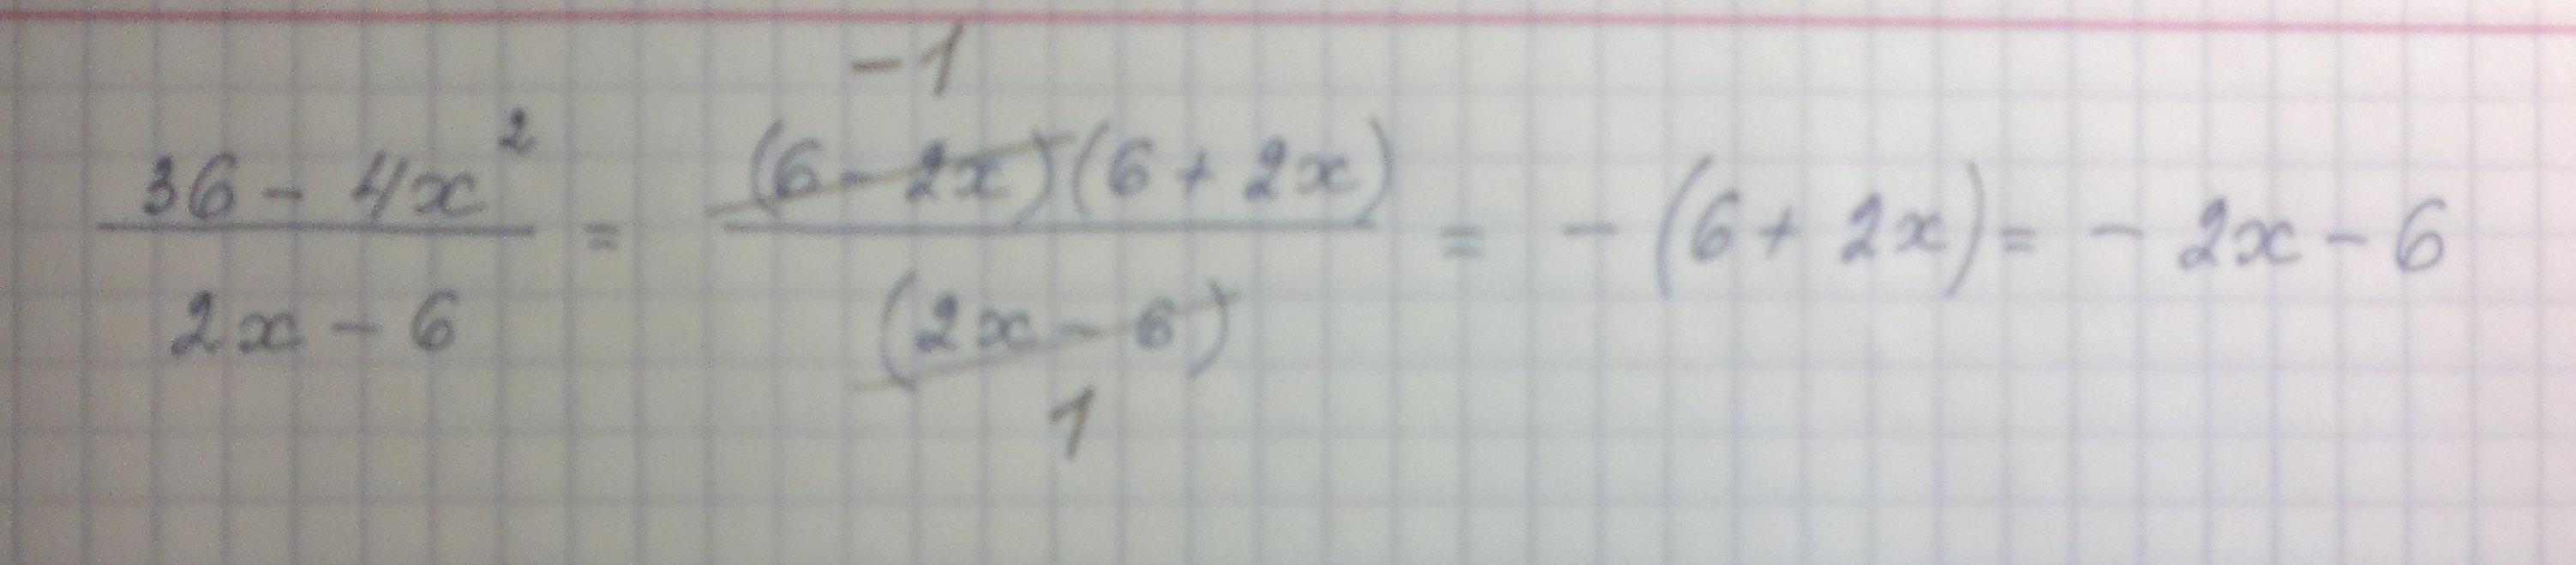 (36 - 4x²)/(2x - 6) = ((6 - 2x)(6 + 2x))/((2x - 6)) = - (6 + 2x) = - 2x - 6
-1
1